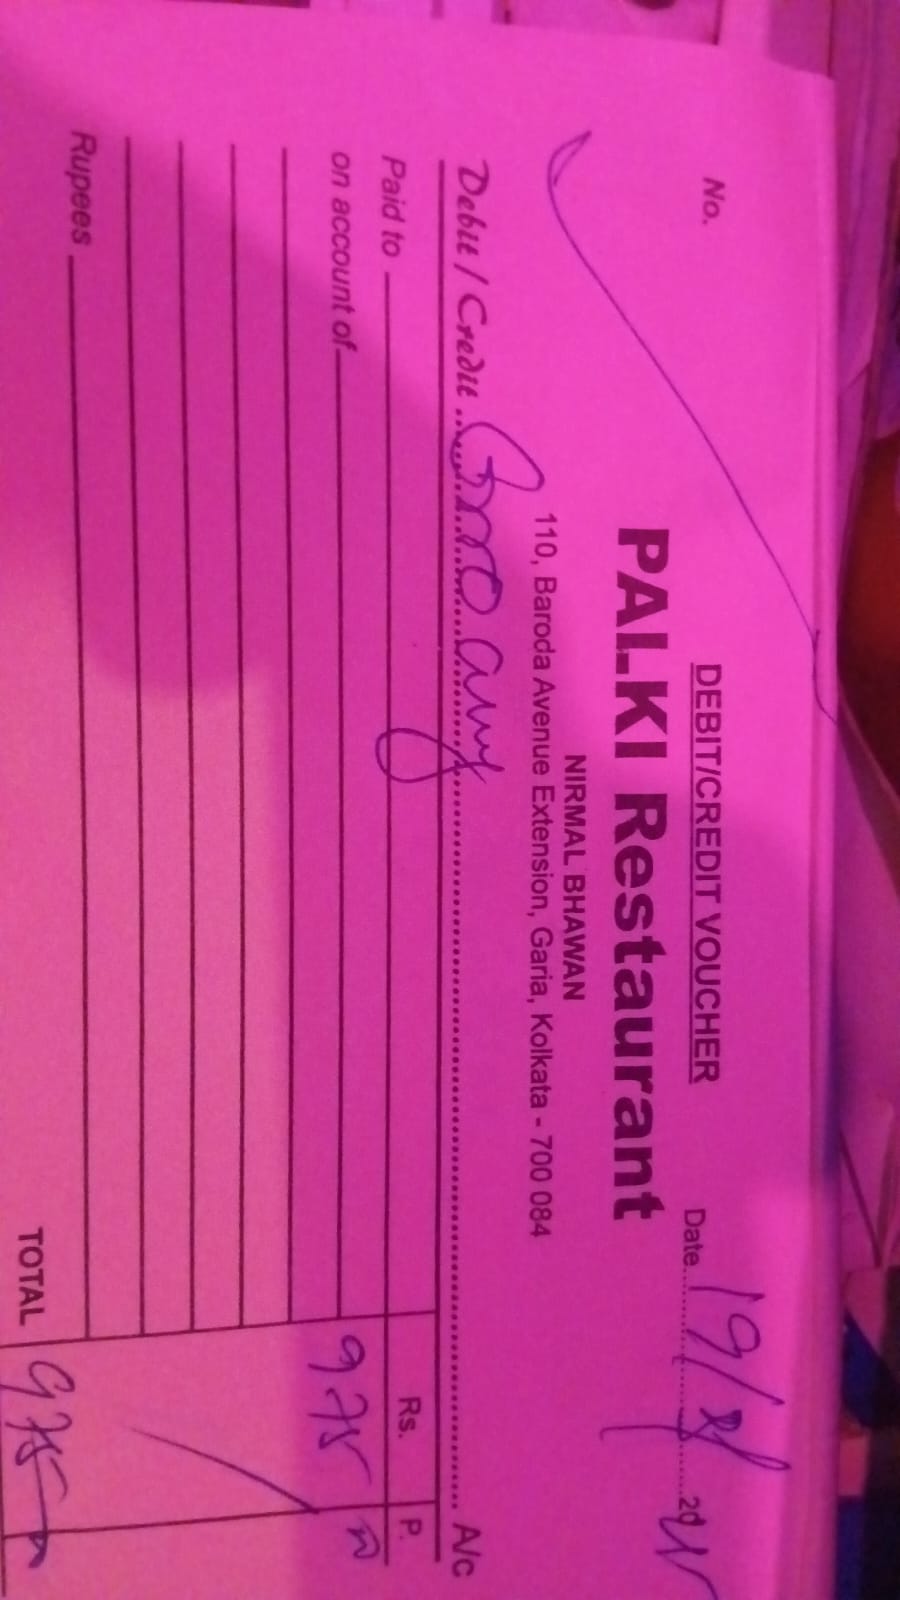 No.
DEBIT/CREDIT VOUCHER
PALKI Restaurant
NIRMAL BHAWAN
110, Baroda Avenue Extension, Garia, Kolkata - 700 084
Date 19/ 20
Debit / Credit A/c
Paid to Rs. P.
on account of 975
Rupees
TOTAL 975